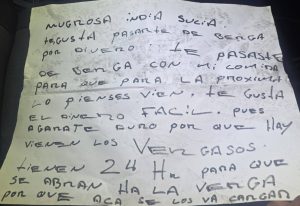 MUGROSA INDIA SUCIA
TEGUSTA PASARTE DE BERGA
POR DIVERO. TE PASASTE
DE BERGA CON MI COMIDA
PARA QUE PARA LA PROXIMA
LO PIENSES VIEN. TE GUSTA
EL DINERO FACIL. PUES
AGARATE DURO POR QUE HAY
VIENEN LOS VERGASOS.
TIENEN 24 Hr PARA QUE
SE ABRAN HA LA VERGA
POR QUE ACA SE LOS VA CARGAR